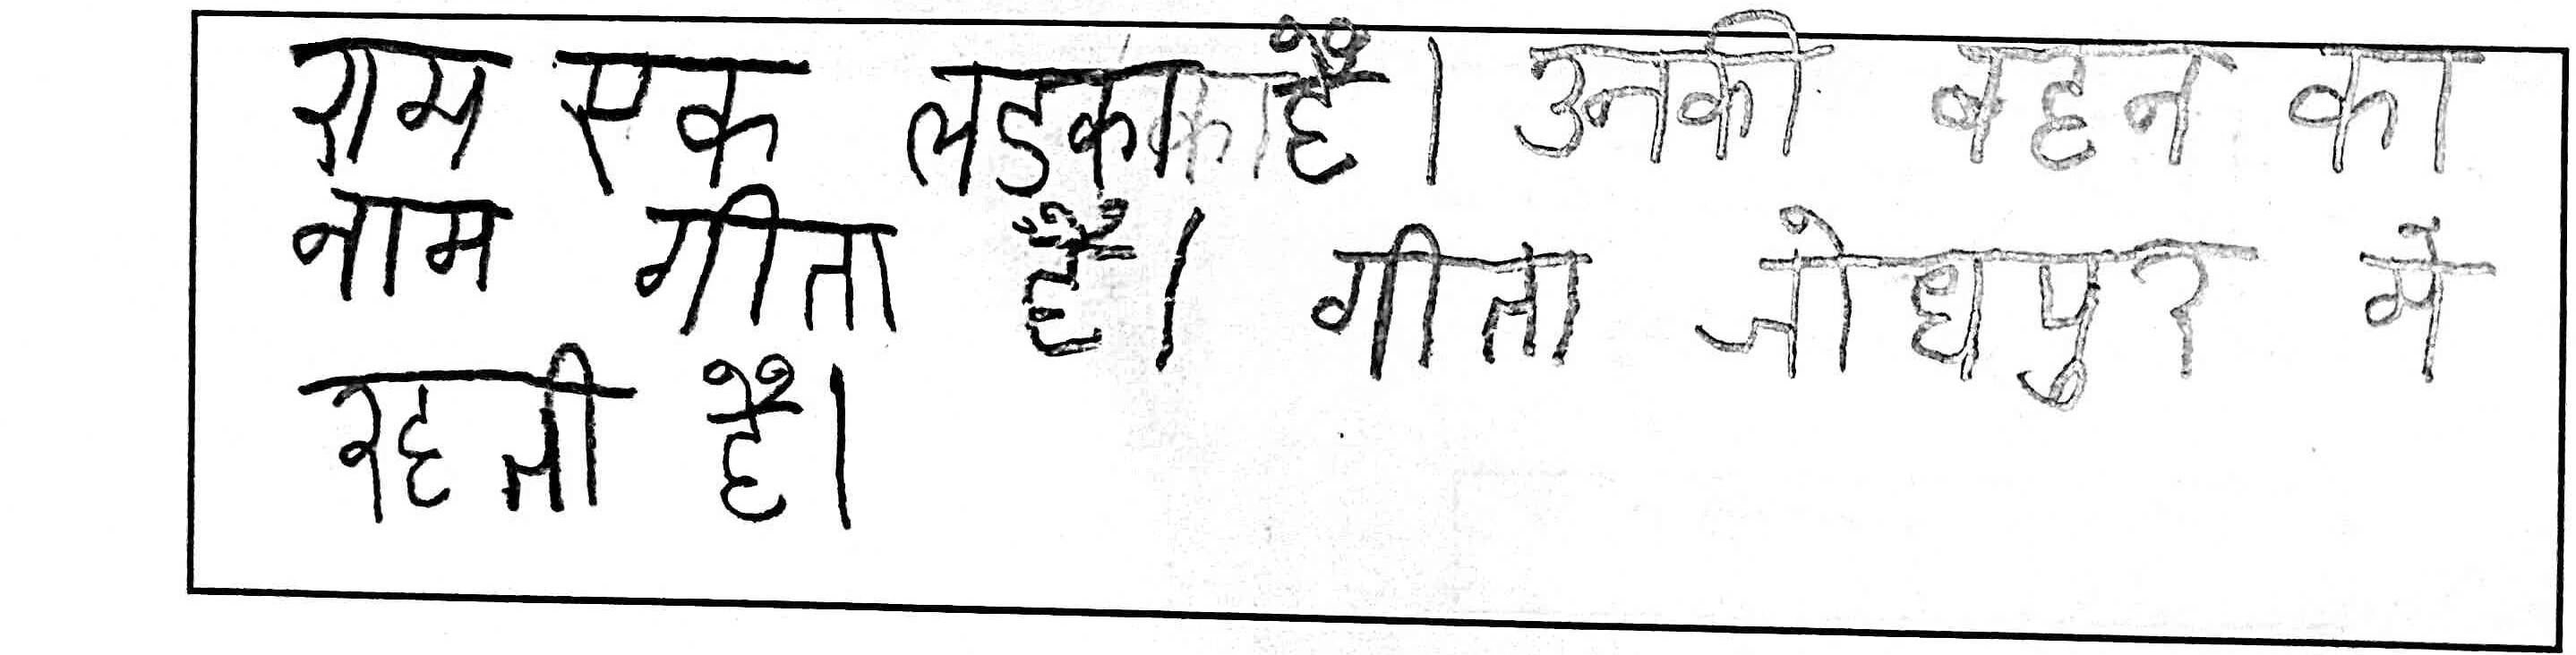 राम एक लडका है। उनकी बहन का
नाम गीता है। गीता जोधपुर में
रहती है।